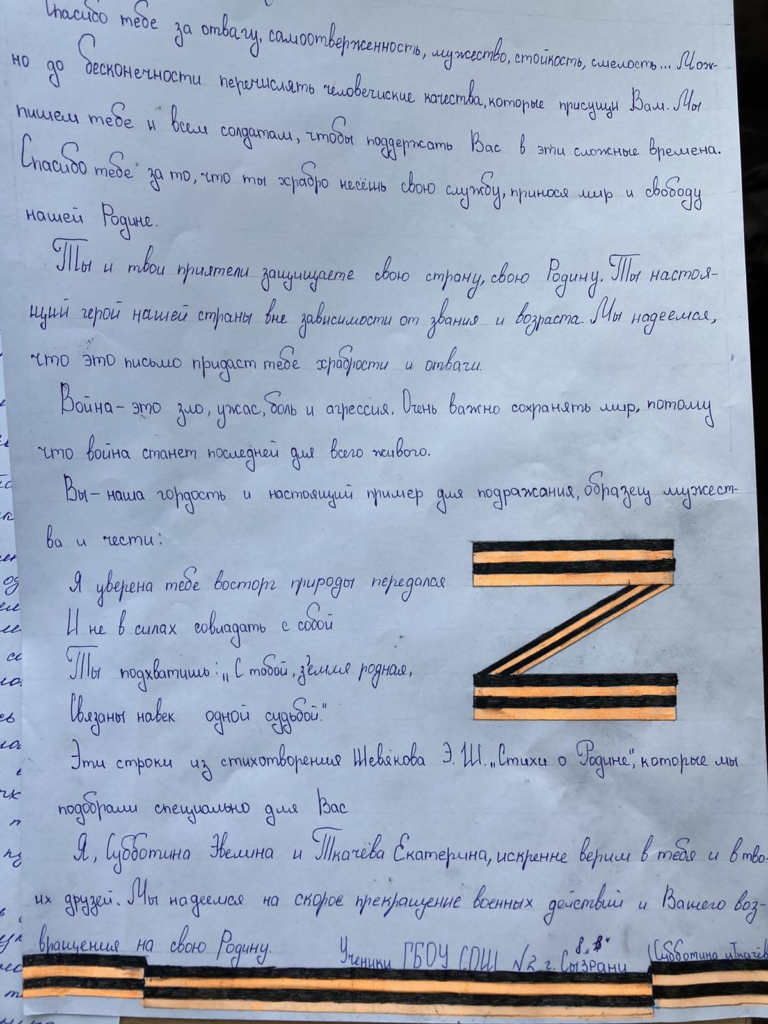 Спасибо тебе за отвагу, самоотверженность, мужество, стойкость, смелость... Мож-
но до бесконечности перечислять человечиские качества, которые присущи Вам. Мы
пишем тебе и всем солдатам, чтобы поддержать Вас в эти сложные времена.
Спасибо тебе за то, что ты храбро несёшь свою службу, принося мир и свободу
нашей Родине.
Ты и твои приятели защищаете свою страну, свою Родину. Ты настоя-
щий герой нашей страны вне зависимости от звания и возраста. Мы надеемся,
что это письмо придаст тебе храбрости и отваги.
Война - это зло, ужас, боль и агрессия. Очень важно сохранять мир, потому
что война станет последней для всего живого.
Вы - наша гордость и настоящий пример для подражания, образец мужест-
ва и чести:
Я уверена тебе восторг природы передался
И не в силах совладать с собой
Ты подхватишь: „С тобой, земля родная,
Связаны навек одной судьбой."
Эти строки из стихотворения Шевякова Э. Ш. „Стихи о Родине", которые мы
подобрали специально для Вас
Я, Субботина Эвелина и Ткачёва Екатерина, искренне верим в тебя и в тво-
их друзей. Мы надеемся на скорое прекращение военных действий и Вашего воз-
вращения на свою Родину.
Ученики ГБОУ СОШ №2 г. Сызрани 8 „В" (Субботина и Ткачёв
Z